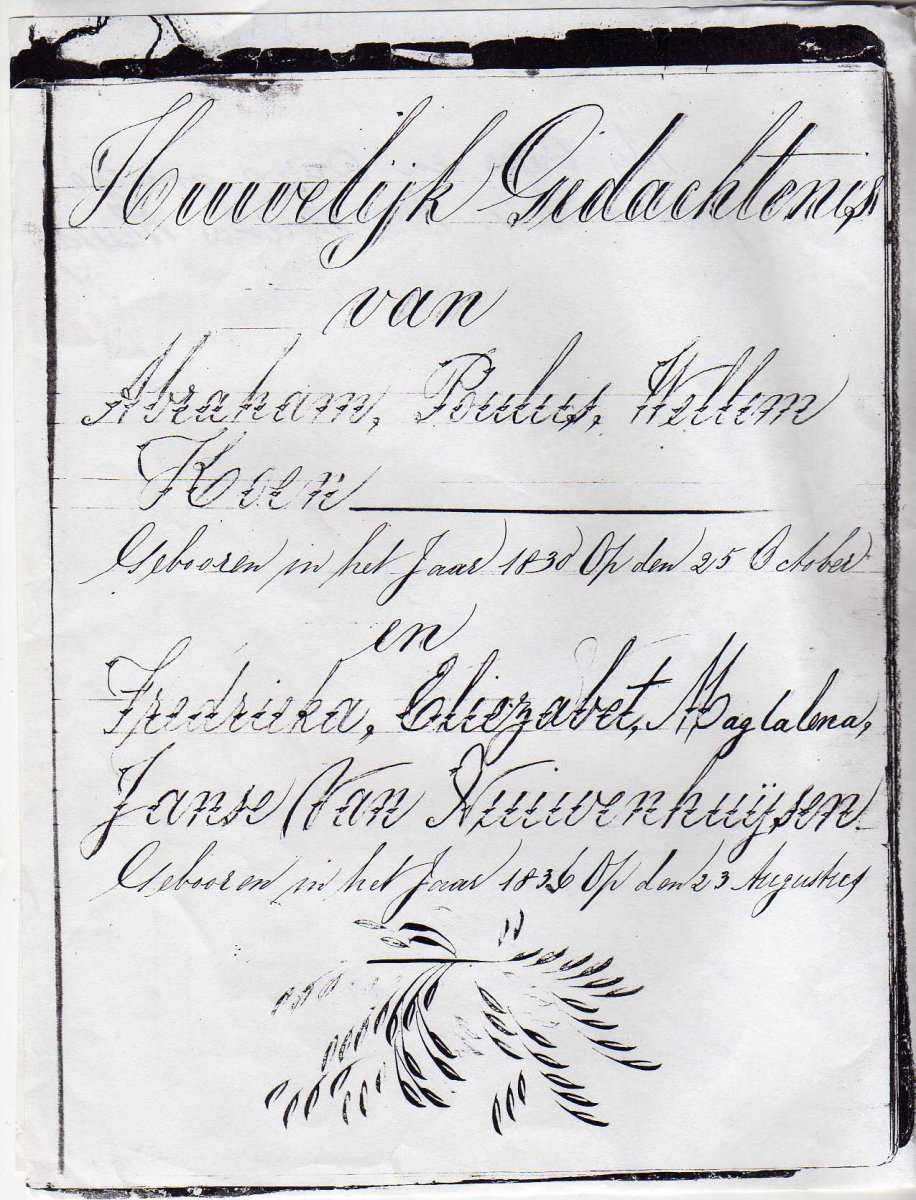 Huwelijk Gedachtenis
van
Abraham, Poulus, Willem
Koen
Gebooren in het Jaar 1830 Op den 25 October
en
Fredrieka, Eliezabet, Magdalena,
Janse Van Nuiwenhuijsen
Gebooren in het Jaar 1836 Op den 23 Augustus